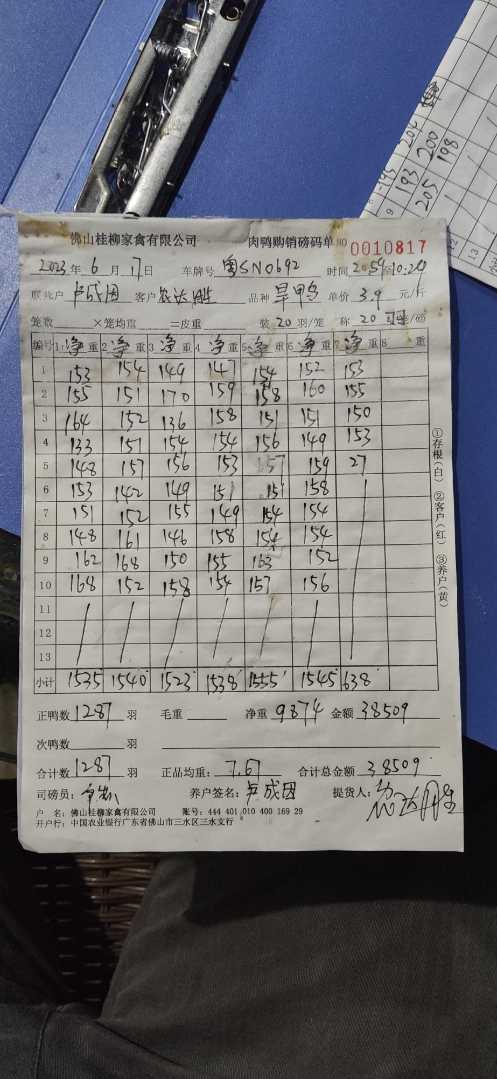 佛山桂柳家禽有限公司 肉鸭购销磅码单 NO 0010817
2023年6月17日 车牌号 粤SN0692 时间 20:54至10:20
联养户 卢成团 客户 农达胜 品种 旱鸭 单价 3.9 元/斤
笼数 ×笼均重 =皮重 装 20 羽/笼 称 20
编号 1 净重 2 净重 3 净重 4 净重 5 净重 6 净重 7 净重 8 重
1 153 154 149 147 154 152 153
2 155 151 170 159 158 160 155
3 164 152 136 158 151 151 150
4 133 151 154 154 156 149 153
5 148 157 156 153 157 159 27
6 153 142 149 151 151 158
7 151 152 155 149 154 154
8 148 161 146 158 154 154
9 162 168 150 155 163 152
10 168 152 158 154 157 156
11
12
13
小计 1535 1540 1523 1538 1555 1545 638
正鸭数 1287 羽 毛重 净重 9874 金额 38509
次鸭数 羽
合计数 1287 羽 正品均重: 7.67 合计总金额 38509
司磅员: 养户签名: 卢成团 提货人:
户 名: 佛山桂柳家禽有限公司 账号: 444 401 010 400 169 29
开户行: 中国农业银行广东省佛山市三水区三水支行
①存根(白) ②客户(红) ③养户(黄)
195 204
193 200
205 198